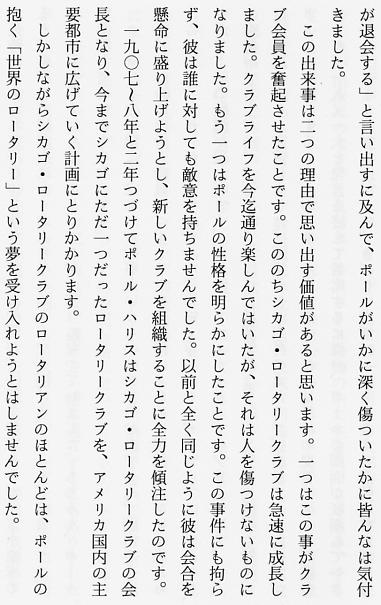 が退会する」と言い出すに及んで、ポールがいかに深く傷ついたかに皆んなは気付
きました。
この出来事は二つの理由で思い出す価値があると思います。一つはこの事がクラ
ブ会員を奮起させたことです。こののちシカゴ・ロータリークラブは急速に成長し
ました。クラブライフを今迄通り楽しんではいたが、それは人を傷つけないものに
なりました。もう一つはポールの性格を明らかにしたことです。この事件にも拘ら
ず、彼は誰に対しても敵意を持ちませんでした。以前と全く同じように彼は会合を
懸命に盛り上げようとし、新しいクラブを組織することに全力を傾注したのです。
一九〇七〜八年と二年つづけてポール・ハリスはシカゴ・ロータリークラブの会
長となり、今までシカゴにただ一つだったロータリークラブを、アメリカ国内の主
要都市に広げていく計画にとりかかります。
しかしながらシカゴ・ロータリークラブのロータリアンのほとんどは、ポールの
抱く「世界のロータリー」という夢を受け入れようとはしませんでした。